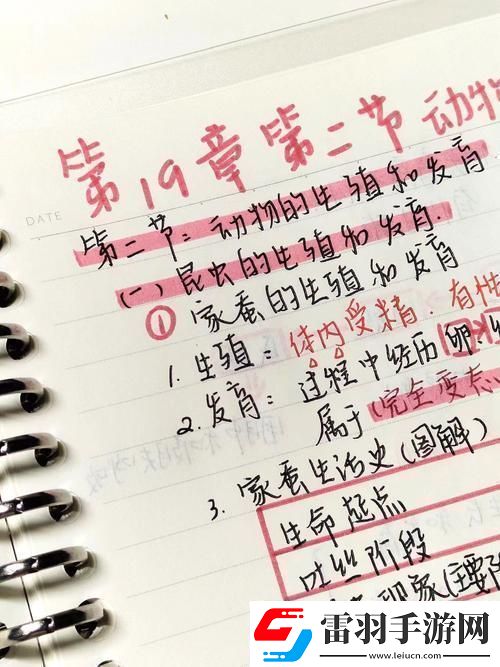 第19章第二节动物
DATE
第二节:动物的生殖和发育.
(一)昆虫的生殖和发育.
① 家蚕的生殖和发育
1. 生殖:体内受精.有性
2. 发育:过程中经历卵、
属于(完全变态
3. 家蚕生活史(图解)
生命起点
吐丝阶段
现象(主要
雷羽手游网
www.leiucn.com